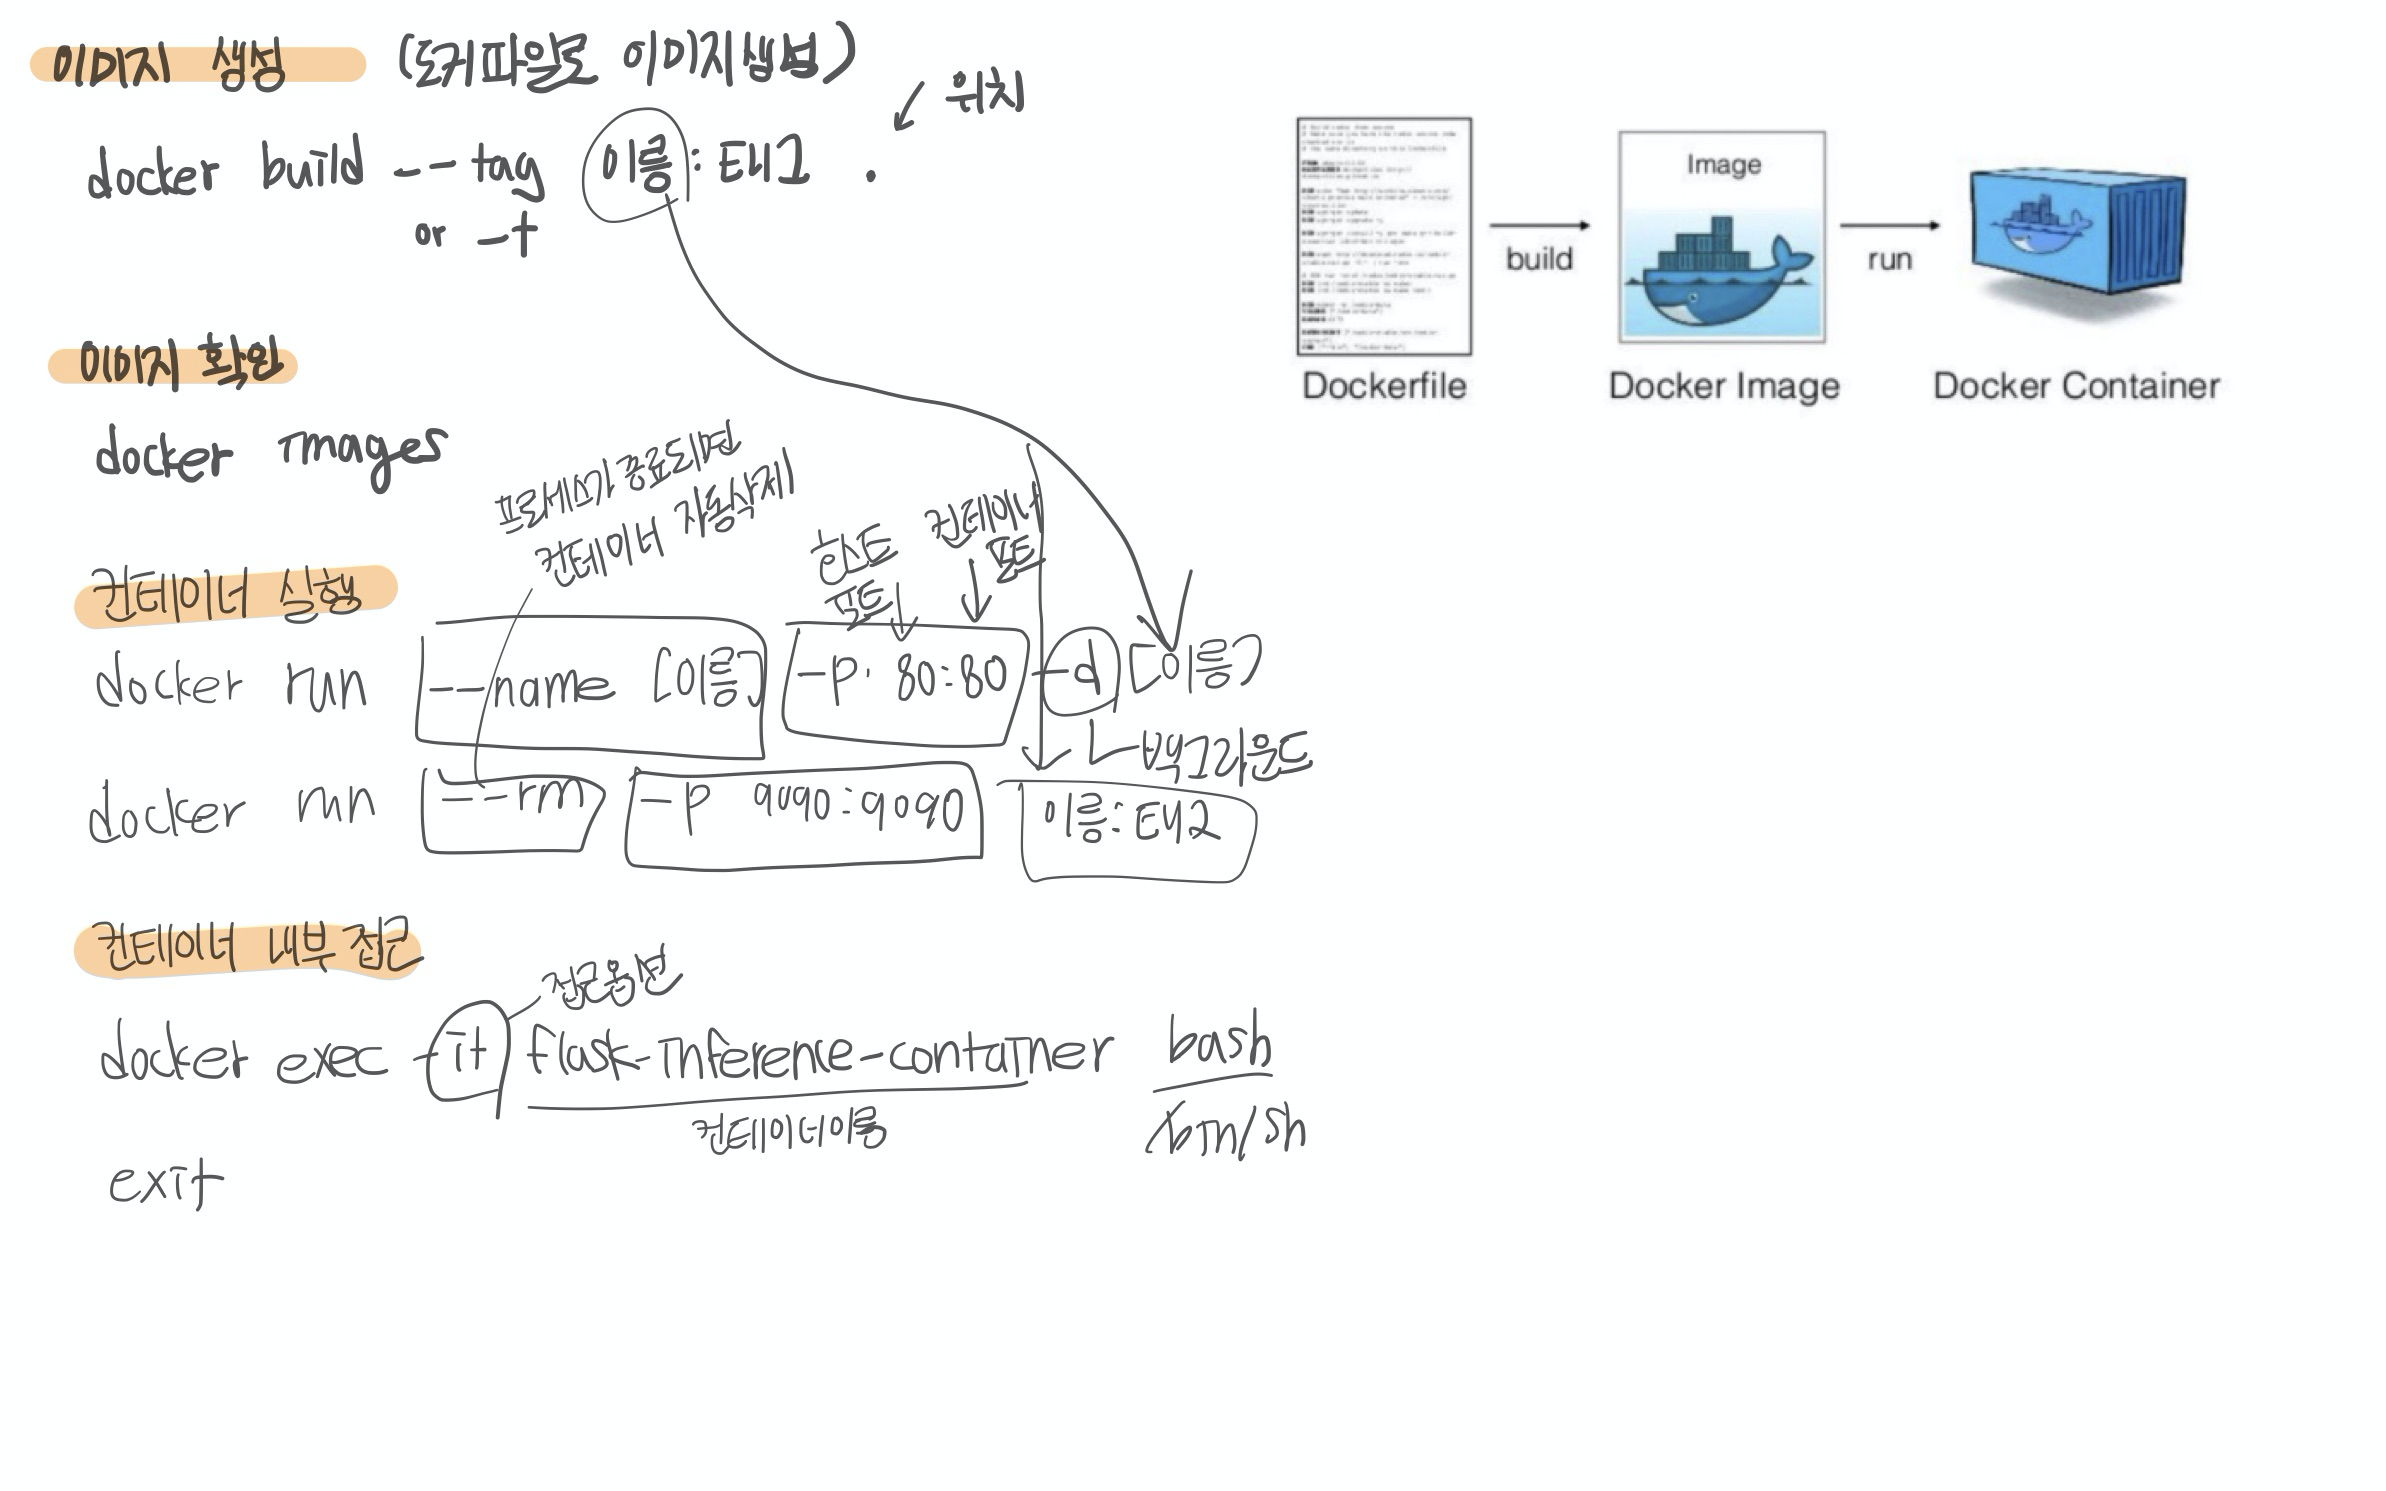 이미지 생성 (도커파일로 이미지생성)
위치
docker build --tag 이름:태그 .
or -t
이미지 확인
docker images
프로세스가 종료되면
컨테이너 자동삭제
호스트
포트
컨테이너
포트
컨테이너 실행
docker run --name [이름] -p 80:80 -d [이름]
백그라운드
docker run --rm -p 9090:9090 이름:태그
컨테이너 내부 접근
접근옵션
docker exec -it flask-inference-container bash
컨테이너이름
/bin/sh
exit
Image
build
run
Dockerfile
Docker Image
Docker Container